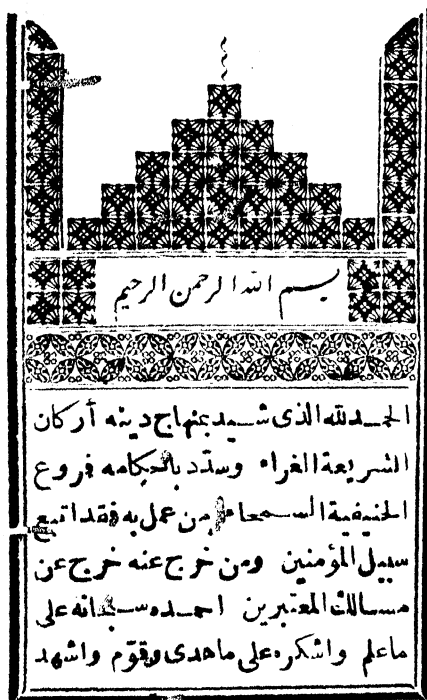 بسم الله الرحمن الرحيم
الحمد لله الذى شيد بمنهاج دينه أركان
الشريعة الغراء وسدد باحكامه فروع
الحنيفية السمحاء من عمل به فقد اتبع
سبيل المؤمنين ومن خرج عنه خرج عن
مسالك المعتبرين احمده سبحانه على
ما علم واشكره على ما هدى وقوم واشهد